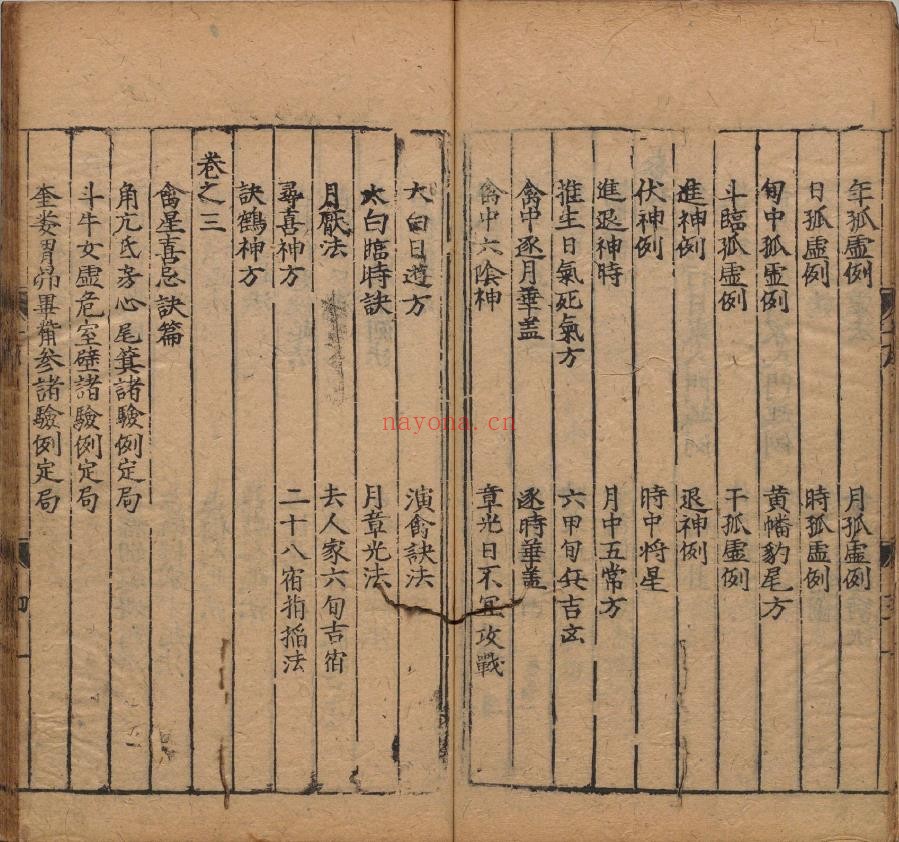 年孤虛例 月孤虛例
日孤虛例 時孤虛例
旬中孤虛例 黃幡豹尾方
斗臨孤虛例 干孤虛例
進神例 退神例
伏神例 時中將星
進退神時 月中五常方
推生日氣死氣方 六甲旬兵吉
禽中逐月華盖 逐時華盖
禽中六陰神 章光日不宜攻戰
太白日遊方 演禽訣法
太白臨時訣 月章光法
月厭法 去人家六旬吉宿
尋喜神方 二十八宿指掐法
訣鶴神方
卷之三
禽星喜忌訣篇
角亢氐房心尾箕諸驗例定局
斗牛女虛危室壁諸驗例定局
奎婁胃昴畢觜參諸驗例定局
nayona.cn